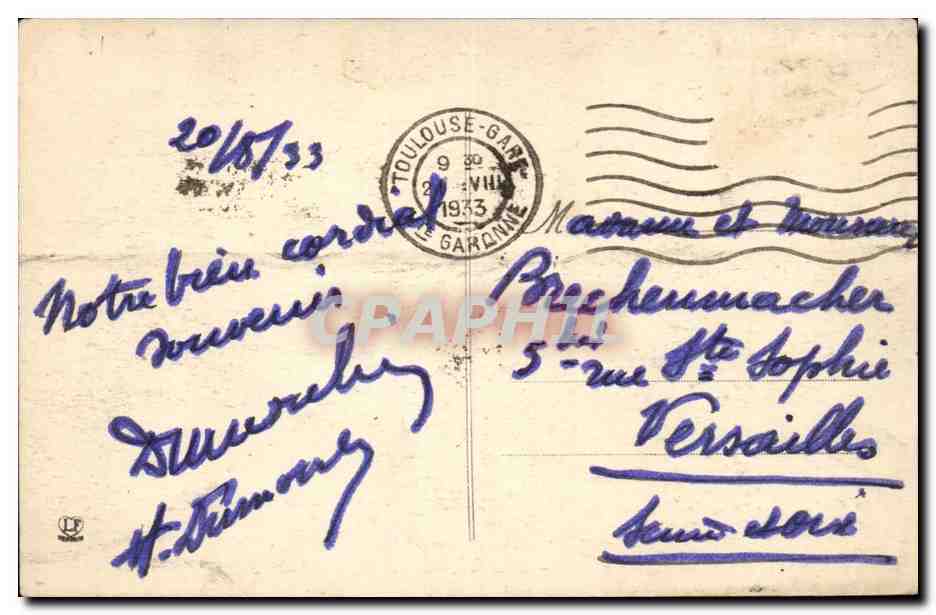 20/8/33
TOULOUSE-GARE
9 30
VIII
1933
GARONNE
Notre bien cordial
souvenir
Madame et Monsieur
Brechenmacher
5 rue Ste Sophie
Versailles
Seine et Oise
CPAPHIL
LF